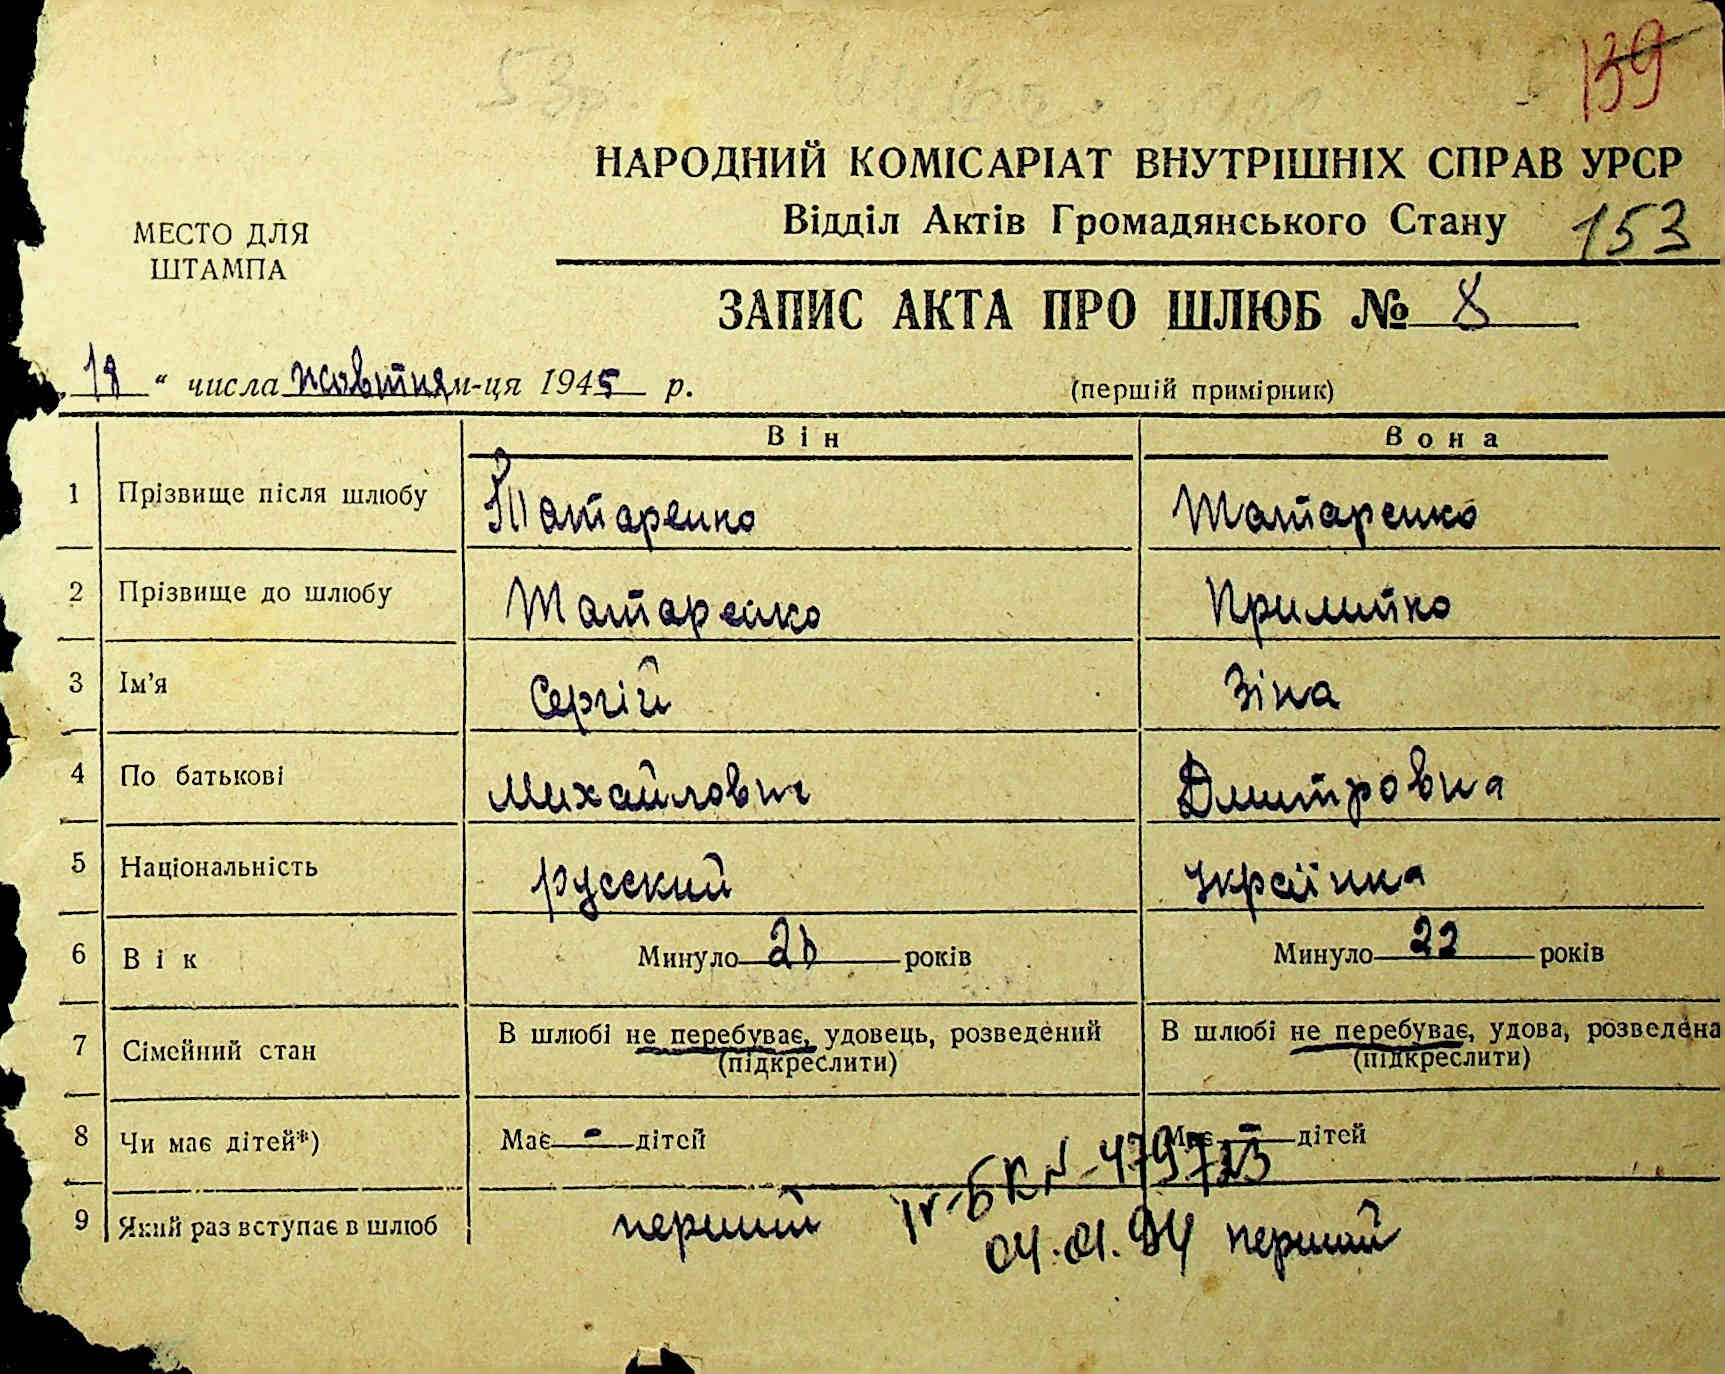 139
НАРОДНИЙ КОМІСАРІАТ ВНУТРІШНІХ СПРАВ УРСР
Відділ Актів Громадянського Стану 153
МЕСТО ДЛЯ
ШТАМПА
ЗАПИС АКТА ПРО ШЛЮБ № 8
18 “ числа жовтня м-ця 1945 р. (першій примірник)
Він Вона
1 Прізвище після шлюбу Татаренко Татаренко
2 Прізвище до шлюбу Татаренко Прилипко
3 Ім’я Сергій Зіна
4 По батькові Михайлович Дмитровна
5 Національність русский українка
6 Вік Минуло 26 років Минуло 22 років
7 Сімейний стан В шлюбі не перебуває, удовець, розведений В шлюбі не перебуває, удова, розведена
(підкреслити) (підкреслити)
8 Чи має дітей*) Має - дітей Має - дітей
IV-БК № 479723
9 Який раз вступає в шлюб перший перший
04.01.94